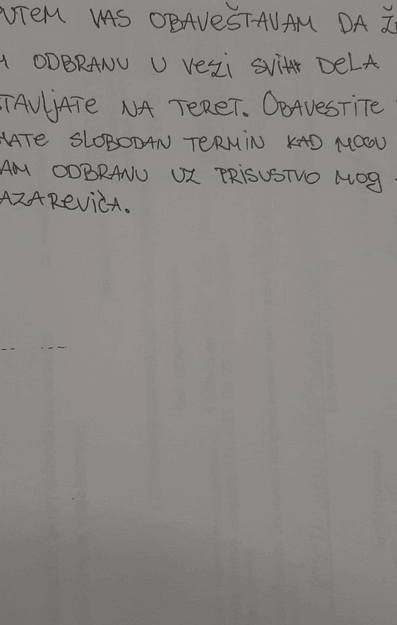 UTEM VAS OBAVEŠTAVAM DA Ž
ODBRANU U VEZI SVIH DELA
TAVLJATE NA TERET. OBAVESTITE
MATE SLOBODAN TERMIN KAD MOGU
AM ODBRANU UZ PRISUSTVO MOG
AZAREVIĆA.